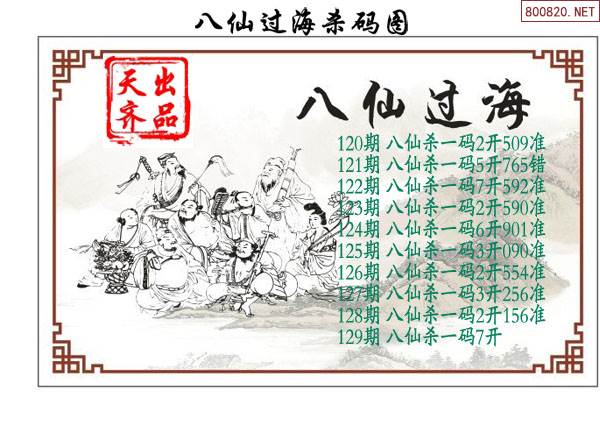 800820.NET
八仙过海杀码图
天齐出品
八仙过海
120期 八仙杀一码2开509准
121期 八仙杀一码5开765错
122期 八仙杀一码7开592准
123期 八仙杀一码2开590准
124期 八仙杀一码6开901准
125期 八仙杀一码3开090准
126期 八仙杀一码2开554准
127期 八仙杀一码3开256准
128期 八仙杀一码2开156准
129期 八仙杀一码7开